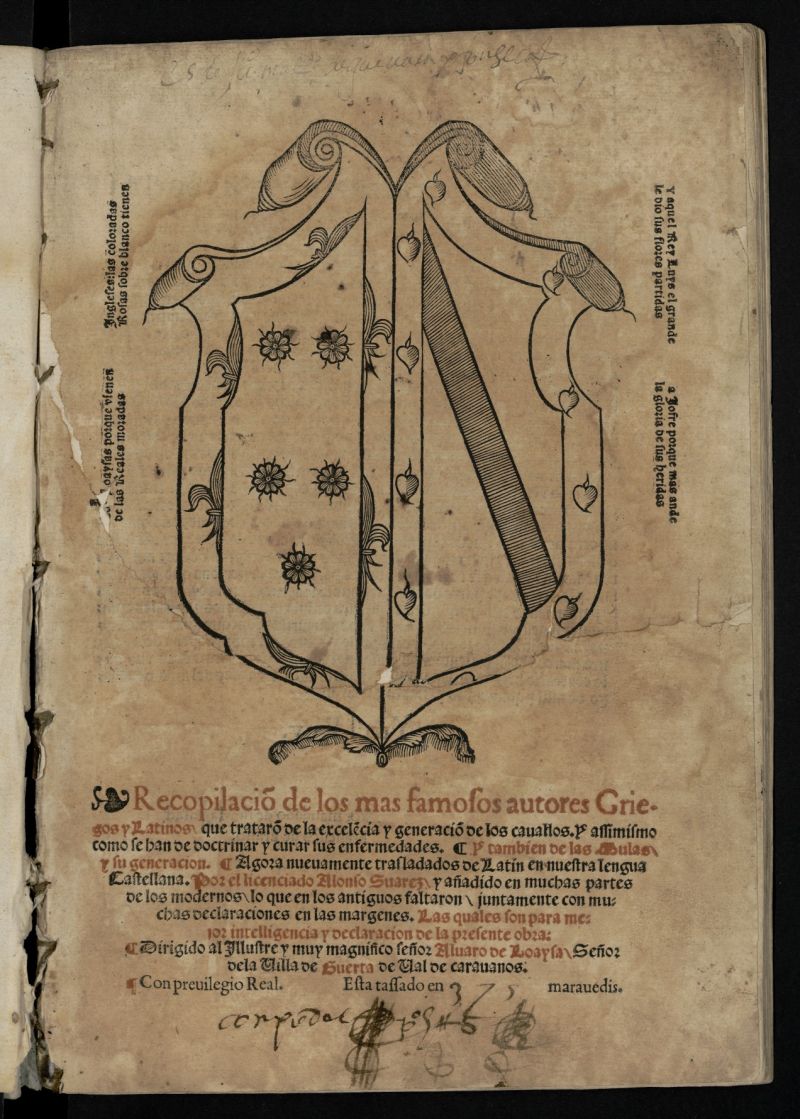 Ingleses:las coloradas
Rosas sobre blanco tienen
Loaysas porque vienen
de las Reales moradas
y aquel Rey Luys el grande
le dio sus flores partidas
a Jofre porque mas ande
la gloria de sus heridas
Recopilaciō de los mas famosos autores Grie-
gos y Latinos\ que tratarō de la excelēcia y generaciō de los cauallos. Y assimismo
como se han de doctrinar y curar sus enfermedades. ¶ Y tambien de las Mulas\
y su generacion. ¶ Agora nueuamente trasladados de Latin en nuestra lengua
Castellana. Por el licenciado Alonso Suarez\ y añadido en muchas partes
de los modernos\ lo que en los antiguos faltaron\ juntamente con mu-
chas declaraciones en las margenes. Las quales son para me-
jor intelligencia y declaracion de la presente obra:
¶ Dirigido al Illustre y muy magnifico señor Aluaro de Loaysa\ Señor
dela Villa de Guerta de Ual de carauanos.
¶ Con preuilegio Real. Esta tassado en 375 marauedis.